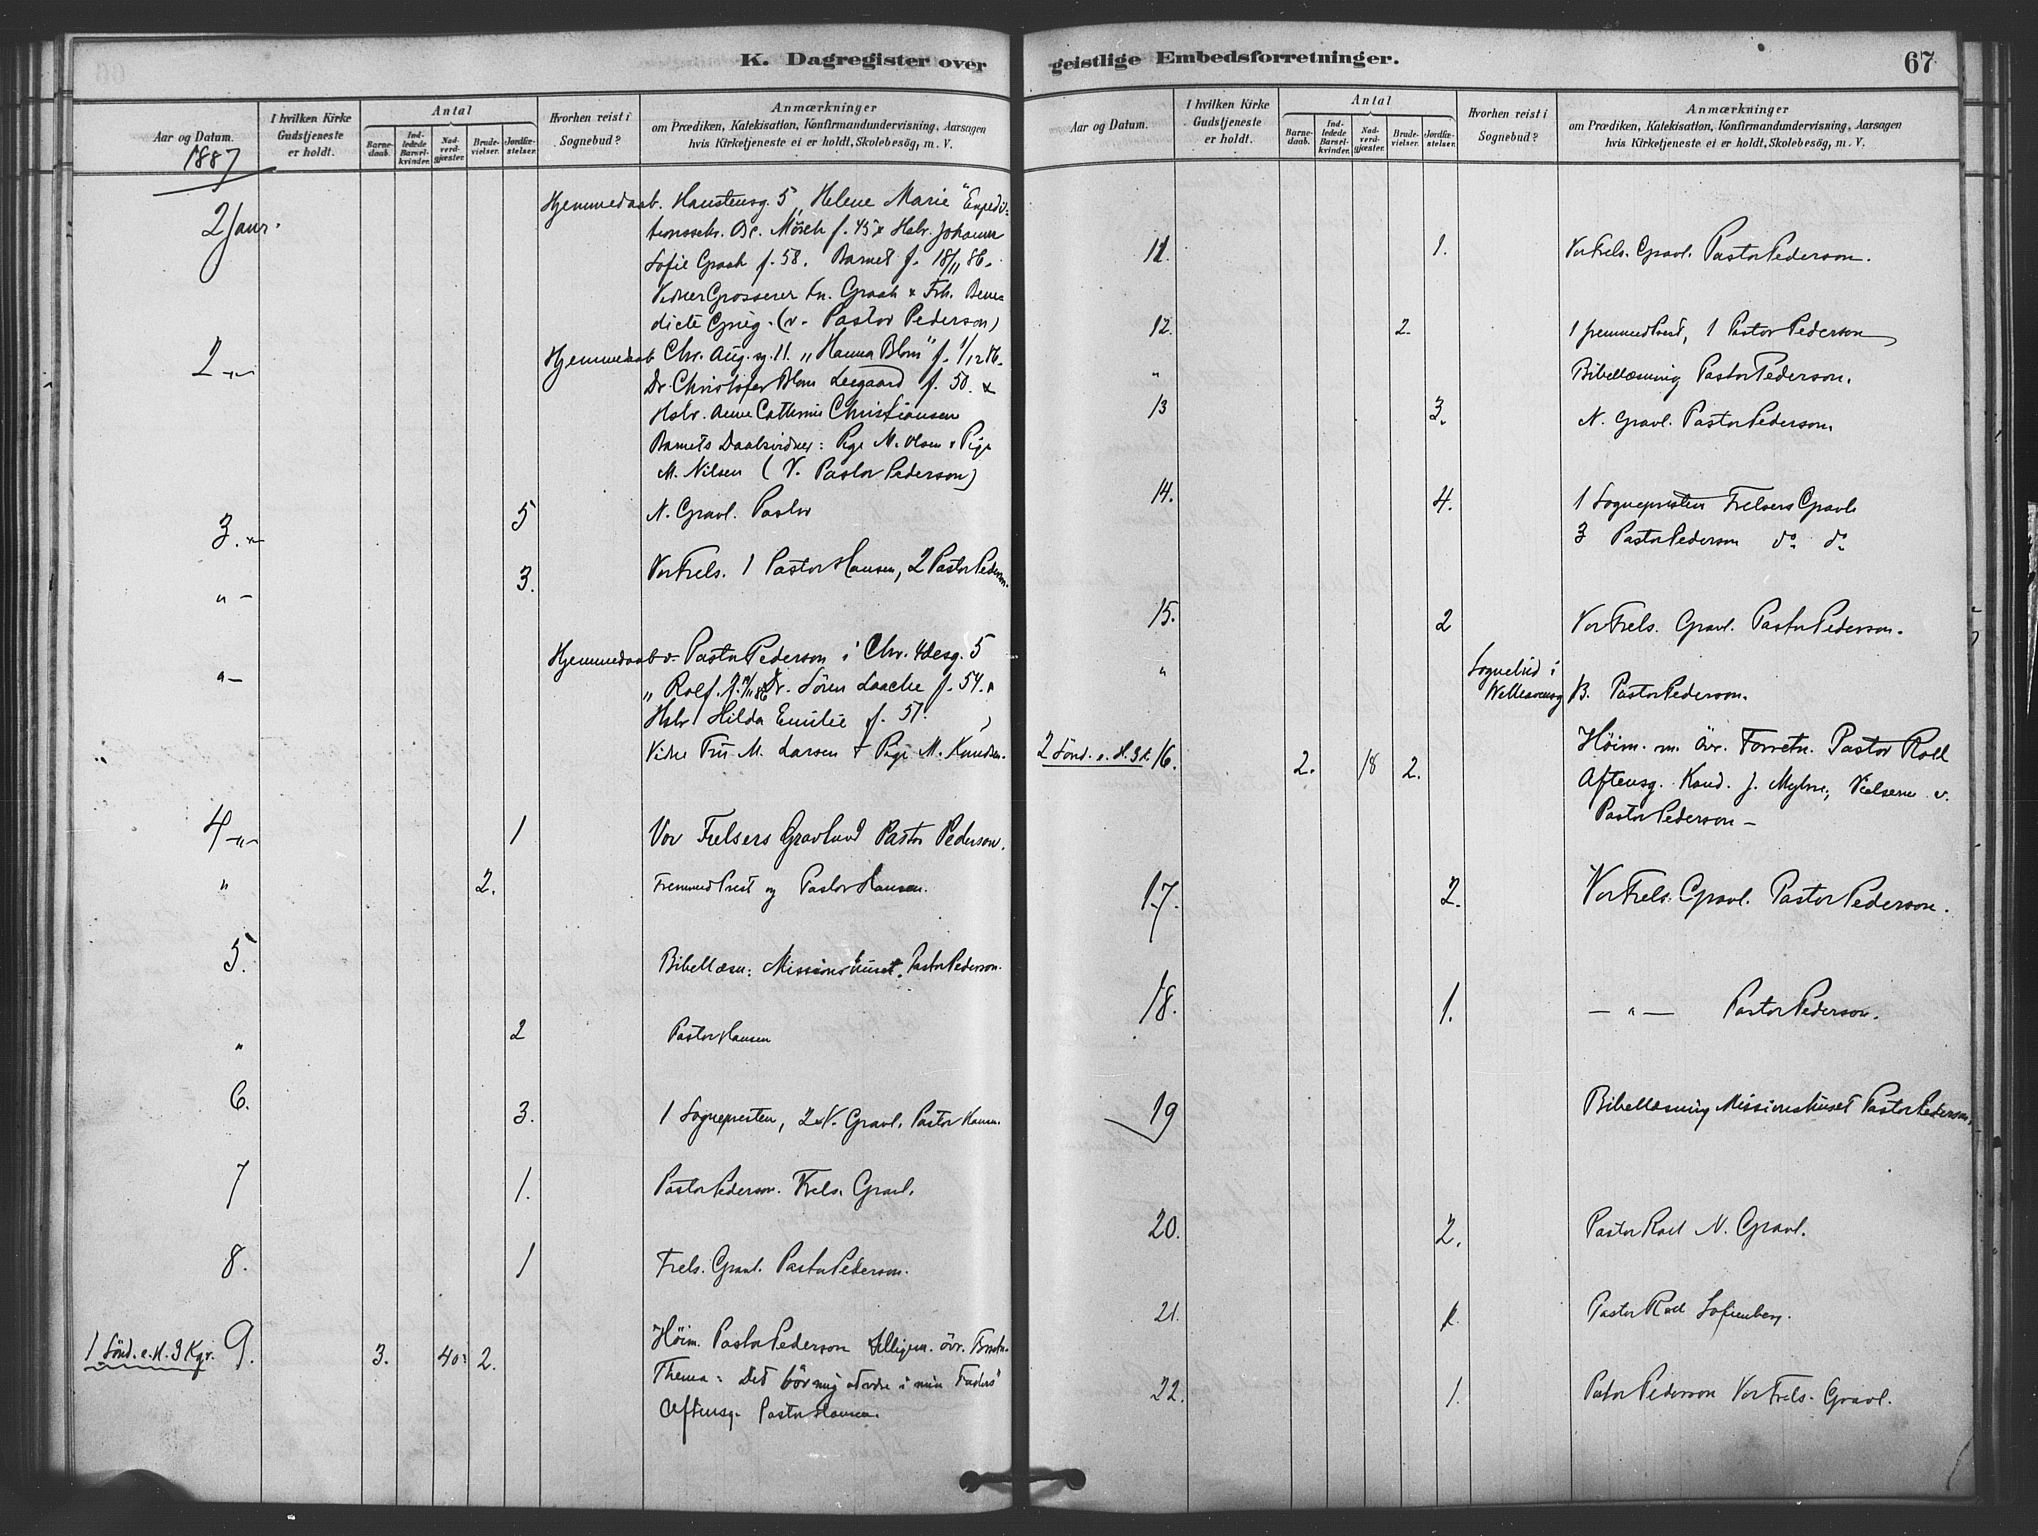 K. Dagregister over
Aar og Datum.
I hvilken Kirke Gudstjeneste er holdt.
Antal
Barnedaab.
Indledede Barselkvinder.
Nadverdgjæster.
Brudevielser.
Jordfæstelser.
Hvorhen reist i Sognebud?
Anmærkninger
om Prædiken, Katekisation, Konfirmandundervisning, Aarsagen
hvis Kirketjeneste ei er holdt, Skolebesög, m. V.
1887
2 Janr. Hjemmedaab. Haustensg. 5, Helene Marie" Expedi-
tionssekr. Mörch f. 45 & Hstr. Johanne
Sofie Graah f. 58. Barnet f. 18/11 86.
Vidner Grosserer Graah & Frk. Bene-
dicte Grieg. (v. Pastor Pederson)
2 -"- Hjemmedaab Chr. Aug. sg. 11. "Hanna Blom" f. 1/12 86.
Dr. Christofer Blom Leegaard f. 50. &
Hstr. Anne Cathrine Christiansen
Barnets Daabsvidner: Pige M. Olsen & Pige
M. Nilsen (V. Pastor Pederson)
3. -"- 5 N. Gravl. Pastor
" - 3. Vor Frels. 1 Pastor Hansen, 2 Pastor Pederson.
" - Hjemmedaab v. Pastor Pederson i Chr. 4desg. 5
"Rolf. Dr. Sören Laache f. 54. &
Hstr. Hilda Emilie f. 57.
Vidne Fru M. Larsen + Pige M. Knudsen.
4 -"- 1 Vor Frelsers Gravlund Pastor Pederson.
" 2. Fremmed Prest og Pastor Hansen.
5. Bibellæsn: Missionshuset. Pastor Pederson.
" 2 Pastor Hansen
6. 3. 1 Sognepresten, 2 N. Gravl. Pastor Hansen.
7 1. Pastor Pederson. Frels. Gravl.
8. 1 Frels. Gravl. Pastor Pederson.
1 Sönd. e. H. 3 Kgr. 9. 3. 40. 2. Höim. Pastor Pederson övr. Forretn.
Thema: Det bör mig at være i min Faders"
Aftensg. Pastor Hansen.
geistlige Embedsforretninger.
67
Aar og Datum.
I hvilken Kirke Gudstjeneste er holdt.
Antal
Barnedaab.
Indledede Barselkvinder.
Nadverdgjæster.
Brudevielser.
Jordfæstelser.
Hvorhen reist i Sognebud?
Anmærkninger
om Prædiken, Katekisation, Konfirmandundervisning, Aarsagen
hvis Kirketjeneste ei er holdt, Skolebesög, m. V.
11. 1. Vor Frels. Gravl. Pastor Pederson.
12. 2. 1 fremmed Prest, 1 Pastor Pederson
" Bibellæsning Pastor Pederson.
13 3. N. Gravl. Pastor Pederson.
14. 4. 1 Sognepresten Frelsers Gravl.
3 Pastor Pederson do do
15. 2 Vor Frels. Gravl. Pastor Pederson.
" Sognebud i
B. Pastor Pederson.
2 Sönd. e. H. 3 K. 16. 2. 18 2. Höim. m. övr. Forretn. Pastor Roll
Aftensg. Kand. J. Myhre; Vielserne v.
Pastor Pederson -
17. 2. Vor Frels. Gravl. Pastor Pederson.
18. 1. — " — Pastor Pederson.
19 Bibellæsning Missionshuset Pastor Pederson.
20. 2. Pastor Roll N. Gravl.
21. 1. Pastor Roll Sofienberg.
22. 1. Pastor Pederson Vor Frels. Gravl.